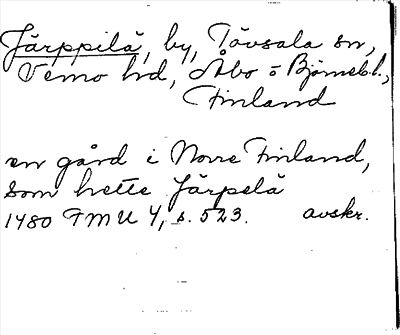 Järppilä, by, Tövsala sn,
Vemo hd, Åbo o Björneb. l.,
Finland
en gård i Norre Finland,
som hette Järpelä
1480 FMU 4, s. 523. avskr.